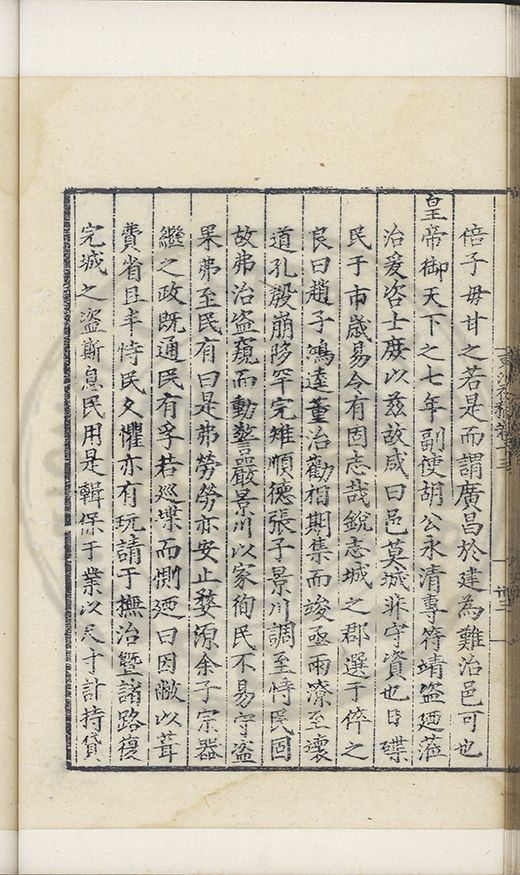 倍子毋甘之若是而謂廣昌於建為難治邑可也
皇帝御天下之七年副使胡公永清專符靖盜廼蒞
治爰咨士庶以茲故咸曰邑莫城非守資也日磔
民于市歲易令有固志哉銳志城之郡選于倅之
良曰趙子鴻逵董治勸相期集而竣亟雨潦至壞
道孔殷崩陊罕完雉順德張子景川調至恃民固
故弗治盜窺而動警嚴景川以家徇民不易守盜
果弗至民有曰是弗勞勞亦安止婺源余子宗器
繼之政既通民有孚若巡堞而惻廼曰因敝以葺
費省且半恃民久懼亦有玩請于撫治暨諸路復
完城之盜斯息民用是輯保于業以尺寸計持貸